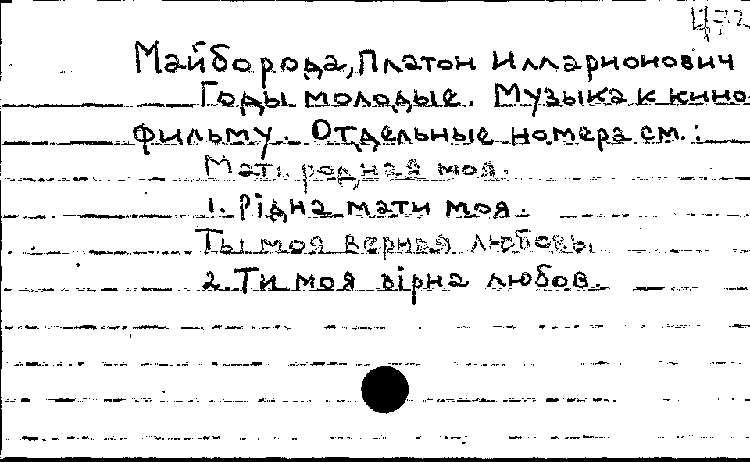 Ц72
Майборода, Платон Илларионович
Годы молодые. Музыка к кино-
фильму. Отдельные номера см.:
Мать родная моя.
1. Рідна мати моя.
Ты моя верная любовь.
2. Ти моя вірна любов.